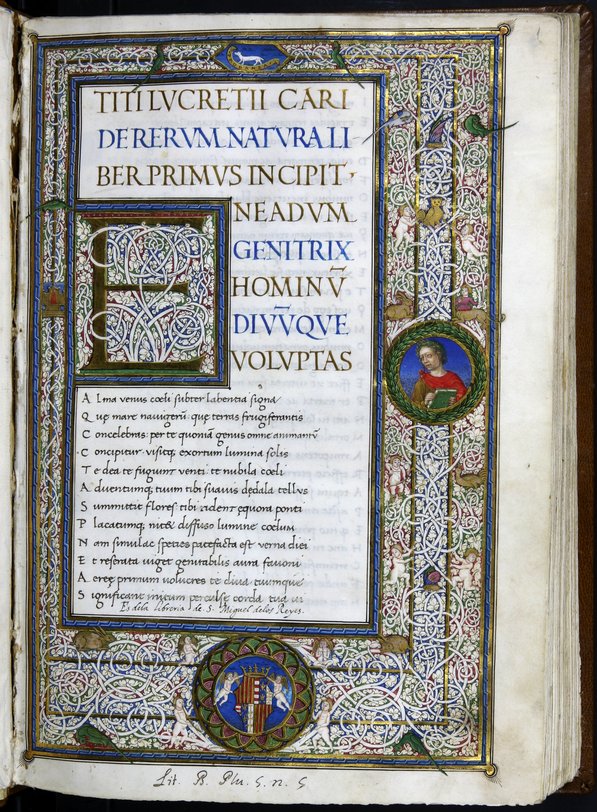 TITI LVCRETII CARI
DE RERVM NATVRA LI
BER PRIMVS INCIPIT·
ENEADVM
GENITRIX
HOMINŪ
DIVŪQVE
VOLVPTAS
Alma venus cœli subter labentia signa
Quę mare navigerū· quę terras frugiferantis
Concelebras: per te quoniā genus omne animantū
Concipitur· visitq; exortum lumina solis
Te dea te fugiunt venti· te nubila cœli
Adventumq; tuum tibi suavis dędala tellus
Summittit flores tibi rident ęquora ponti
Placatumq; nitet diffuso lumine cœlum
Nam simulac species patefacta est verna diei
Et reserata viget genitabilis aura favoni
Aereę primum volucres te diva tuumque
Significant initum perculsę corda tua vi
Es dela libreria de S. Miguel delos Reyes.
Lit. B. Plu. 5. n. 5